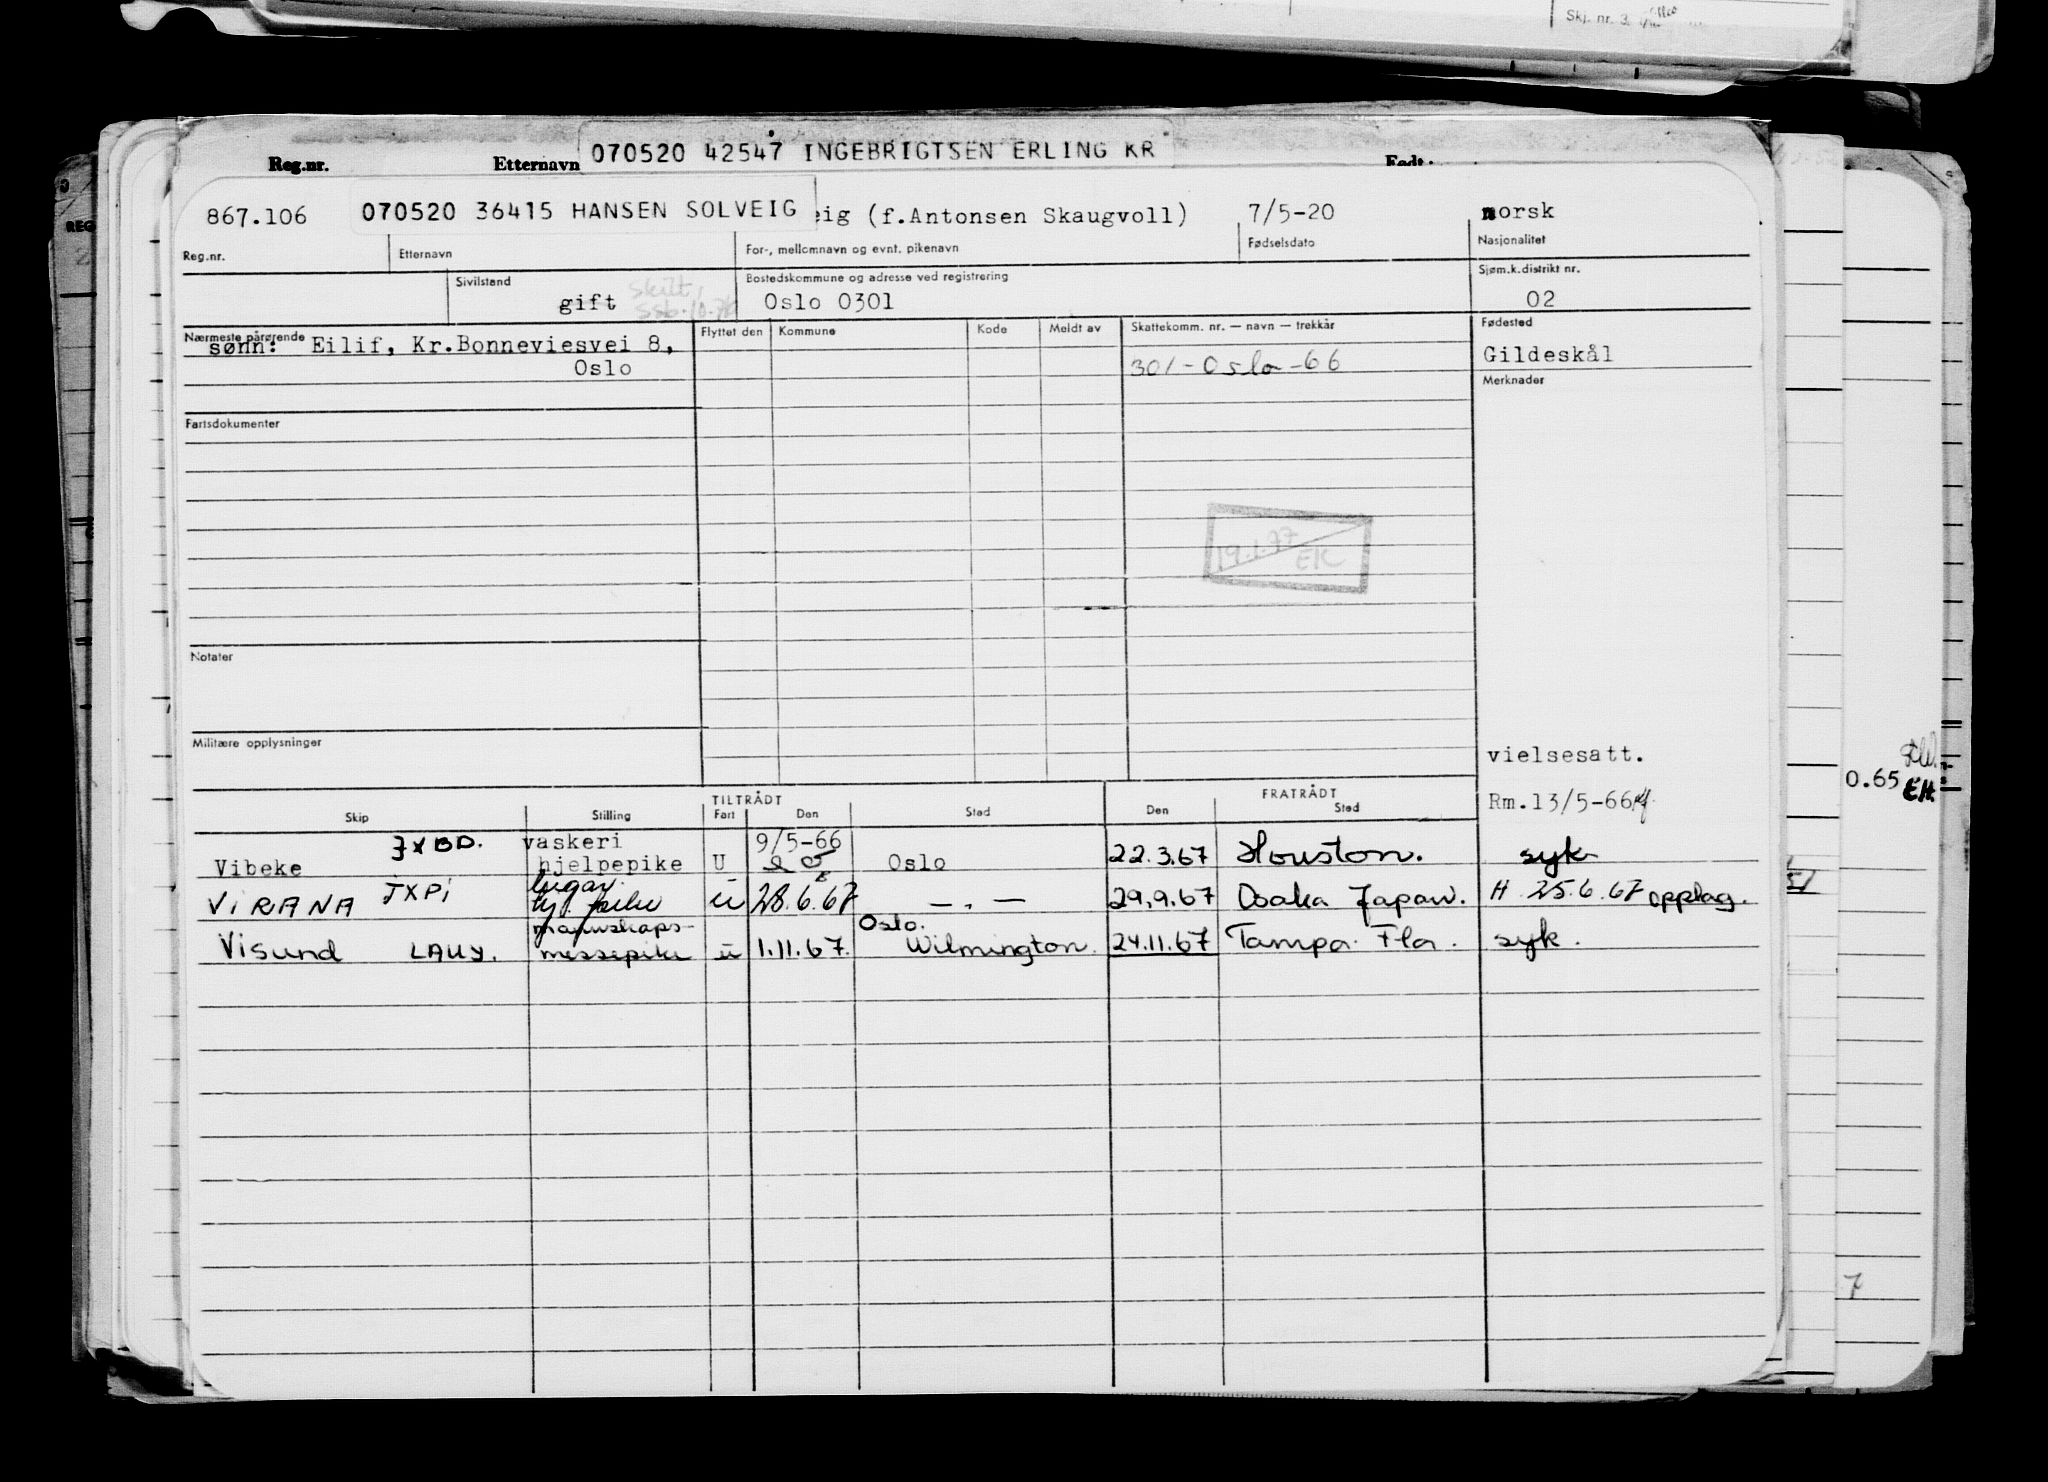 Skj. nr. 3.
Reg.nr. Etternavn 070520 42547 INGEBRIGTSEN ERLING KR Født:
867.106 070520 36415 HANSEN SOLVEIG eig (f.Antonsen Skaugvoll) 7/5-20 norsk
Reg.nr. Etternavn For-, mellomnavn og evnt. pikenavn Fødselsdato Nasjonalitet
Sivilstand gift skilt, ssb.10.76 Bostedskommune og adresse ved registrering Sjøm.k.distrikt nr.
Oslo 0301 02
Nærmeste pårørende Flyttet den Kommune Kode Meldt av Skattekomm. nr. — navn — trekkår Fødested
sønn: Eilif, Kr.Bonneviesvei 8,
Oslo 301-Oslo-66 Gildeskål
Merknader
Fartsdokumenter
19.1.77
EK
Notater
Militære opplysninger
vielsesatt.
0.65 EH.
Rm.13/5-66
TILTRÅDT FRATRÅDT
Skip Stilling Fart Den Sted Den Sted
Vibeke JXBD. vaskeri hjelpepike U 9/5-66 Oslo 22.3.67 Houston. syk
VIRANA JXPI lugar hj. pike ü 28.6.67 — " — 29.9.67 Osaka Japan. H 25.6.67 opplag.
Visund LAUY. mannskaps- messepike ü 1.11.67. Oslo. Wilmington. 24.11.67 Tampa Fla. syk.
7